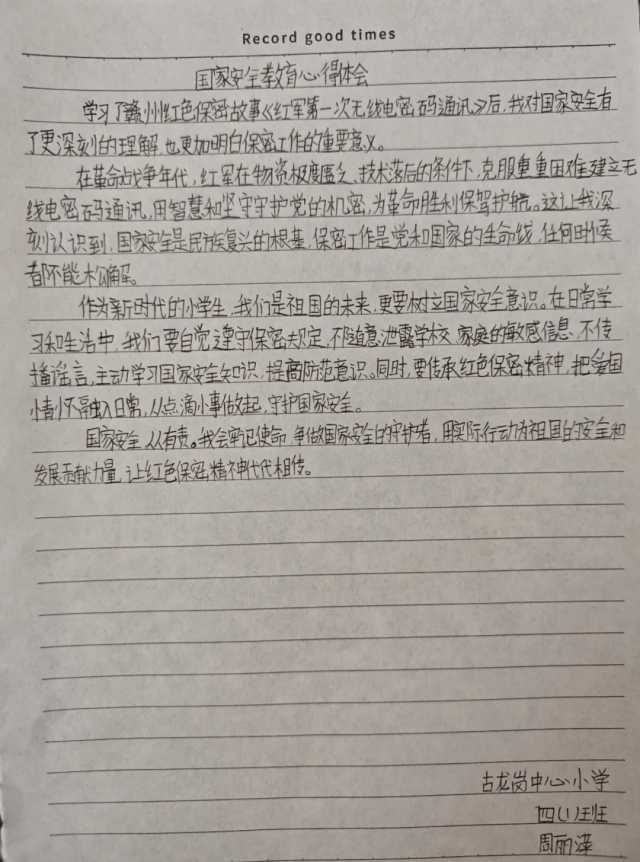 Record good times
国家安全教育心得体会
学习了赣州红色保密故事《红军第一次无线电密码通讯》后，我对国家安全有
了更深刻的理解，也更加明白保密工作的重要意义。
在革命战争年代，红军在物资极度匮乏、技术落后的条件下，克服重重困难建立无
线电密码通讯，用智慧和坚守守护党的机密，为革命胜利保驾护航。这让我深
刻认识到，国家安全是民族复兴的根基，保密工作是党和国家的生命线，任何时候
都不能松懈。
作为新时代的小学生，我们是祖国的未来，更要树立国家安全意识。在日常学
习和生活中，我们要自觉遵守保密规定，不随意泄露学校、家庭的敏感信息，不传
播谣言，主动学习国家安全知识，提高防范意识。同时，要传承红色保密精神，把爱国
情怀融入日常，从点滴小事做起，守护国家安全。
国家安全，人人有责。我会牢记使命，争做国家安全的守护者，用实际行动为祖国的安全和
发展贡献力量，让红色保密精神代代相传。
古龙岗中心小学
四(1)班
周丽泽